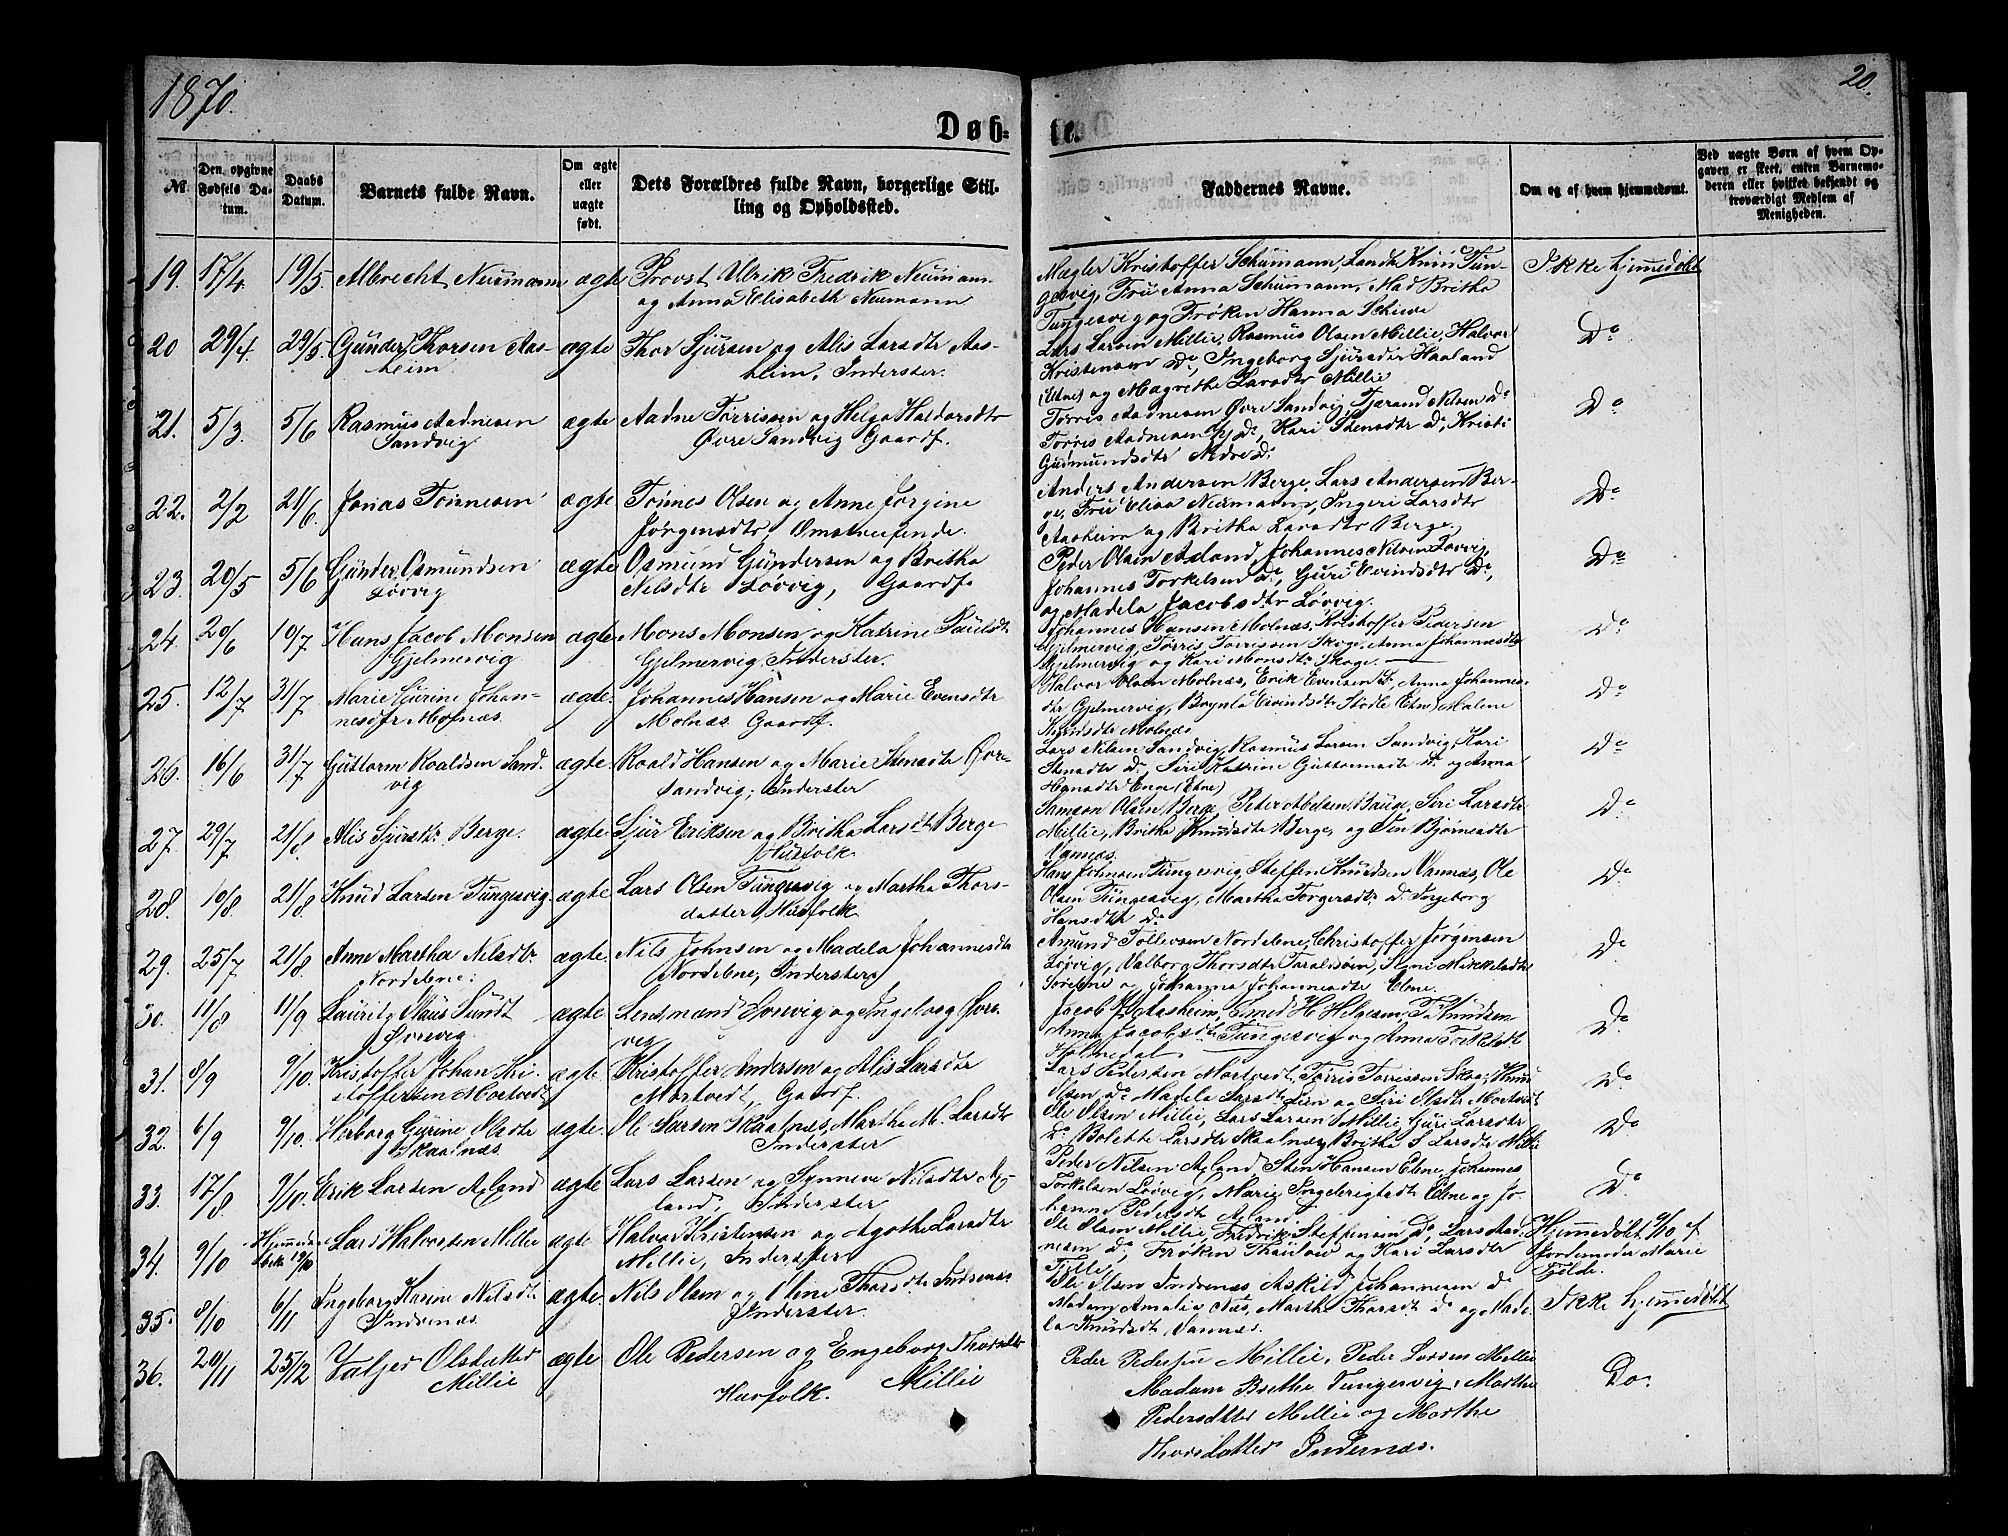 1870.
20.
Døb-
te.
№
Den opgivne Fødsels Datum.
Daabs Datum.
Barnets fulde Navn.
Om ægte eller uægte født.
Dets Forældres fulde Navn, borgerlige Stilling og Opholdssted.
Faddernes Navne.
Om og af hvem hjemmedøbt.
Ved uægte Børn af hvem Opgaven er skeet, enten Barnemoderen eller hvilket bekjendt og troværdigt Medlem af Menigheden.
19. 17/4 19/5. Albrecht Neumann ægte Provst Ulrik Fredrik Neumann
og Anna Elisabeth Neumann
Mægler Kristoffer Schumann, Landh. Knud Tun-
gesvig, Frü Anna Schumann, Mad Britha
Tungesvig og Frøken Hanna Schiwe
Ikke hjemmedøbt
20 29/4. 29/5. Gunder Thorsen Aas-
heim
ægte Thor Sjursen og Alis Larsdtr Aas-
heim, Inderster.
Lars Larsen Millie, Rasmus Olsen Millie, Halvor
Kristensen Do, Ingeborg Sjursdtr Haaland
(Utne) og Magrethe Larsdtr Millie
Do
21. 5/3. 5/6 Rasmus Aadnesen
Sandvig
ægte Aadne Torrissen og Helga Haldorsdtr
Øvre Sandvig Gaardf.
Torris Aadnesen Øvre Sandvig, Tjerand Nilsen Do
Torris Aadnesen Do, Kari Stensdtr Do, Kristi
Gudmundsdtr Nedre Do.
Do
22. 2/2 21/6. Jonas Tønnesen ægte Tönnes Olsen og Anne Jorgine
Jörgensdtr, Omstreifende.
Anders Andersen Berge, Lars Andersen Ber-
ge, Frü Elisa Neumann, Ingeri Larsdtr
Aasheim og Britha Larsdtr Berge.
Do
23. 20/5 5/6 Gunder Osmundsen
Løvvig
ægte Osmund Gundersen og Britha
Nilsdtr Løvvig, Gaardf.
Peder Olsen Axland, Johannes Nilsen Løvvig,
Johannes Torkelsen Do, Guri Evindsdtr Do,
og Madela Jacobsdtr Løvvig.
Do
24. 20/6 10/7 Hans Jacob Monsen
Gjelmervig
ægte Mons Monsen og Katrine Paulsdtr
Gjelmervig Inderster.
Johannes Hansen Molnæs, Kristoffer Pedersen
Gjelmervig, Torris Torrissen Skoge, Anna Johannesdtr
Gjelmervig og Kari Monsdtr Skoge.
Do
25. 12/7 31/7 Marie Gurine Johan-
nesdtr Molnæs.
ægte. Johannes Hansen og Marie Evensdtr
Molnæs Gaardf.
Halvor Olsen Molnæs, Erik Evensen Do, Anna Johannes-
dtr Gjelmervig, Brynla Evindsdtr Stødle (Etne) Malene
Knudsdtr Molnæs
Do
26. 16/6 31/7 Guttorm Roaldsen Sand-
vig
ægte. Roald Hansen og Marie Stensdtr Øvre-
sandvig; Inderster
Lars Nilsen Sandvig, Rasmus Larsen Sandvig, Kari
Stensdtr Do, Siri Katrine Guttormsdtr Do og Anna
Hansdtr Enge (Etne)
Do
27 29/7 21/8. Alis Sjursdtr Berge. ægte Sjur Eriksen og Britha Larsdtr Berge
Husfolk
Samson Olsen Berge, Peder Abelsen Bauge, Siri Larsdtr
Millie, Britha Knudsdtr Berge, og Sen Bjørnsdtr
Vannæs.
Do
28. 10/8. 21/8 Knud Larsen Tungesvig ægte. Lars Olsen Tungesvig og Martha Thors-
datter Husfolk
Hans Johnsen Tungesvig, Steffen Knudsen Vannæs, Ole
Olsen Tungesvig, Martha Torgersdtr Do Ingeborg
Hansdtr Do
Do
29. 25/7 21/8 Anne Martha Nilsdtr
Nordebne.
ægte. Nils Johnsen og Madela Johannesdtr
Nordebne, Inderster
Amund Tollevsen Nordebne, Christoffer Jørgensen
Løvvig, Valborg Thorsdtr, Signi Mikkelsdtr
og Johanna Johannesdtr Ebne.
Do
30. 11/8 11/9 Lauritz Claus Sundt
Øvrevig
ægte Lensmand Øvrevig og Ingeborg Øvre-
vig
Jacob Aasheim, Smed H. Helgesen, T. Knudsen
Anna Jacobsdtr Tungesvig og Anna Torkelsdtr
Holmedal.
Do
31. 8/9 9/10. Kristoffer Johan Kri-
stoffersen Mortvedt
ægte Kristoffer Andersen og Alis Larsdtr
Mortvedt, Gaardf.
Lars Pedersen Mortvedt, Torris Torrissen Skoge, Knud
Olsen Do Madela Larsdtr Lien og Siri Olsdtr Mortvedt
Do
32. 6/9 9/10. Herborg Gurine Olsdtr
Skaalnæs
ægte. Ole Larsen Skaalnæs, Martha M. Larsdtr
Inderster
Ole Olsen Millie, Lars Larsen Millie, Guri Larsdtr
Do Bolette Larsdtr Skaalnæs, Britha S Larsdtr Millie
Do
33. 17/8. 9/10. Erik Larsen Axland ægte Lars Larsen og Synneve Nilsdtr Ax-
land, Inderster
Peder Nilsen Axland, Sten Hansen Ebne, Johannes
Torkelsen Løvvig, Marie Ingebrigtsdtr Ebne og Jo-
hanne Pedersdtr Axland
Do
34. 9/10 Hjemmedøbt 19/10 Lars Halvorsen Millie ægte Halvor Kristensen og Agothe Larsdtr
Millie, Inderster
Ole Olsen Millie, Fredrik Steffensen Do, Lars Aad-
nesen Do, Frøken Thaulow og Kari Larsdtr
Fjelde
Hjemmedøbt 9/10 af
Jordemoder Marie
Fjelde.
35. 8/10 6/11 Ingeborg Karine Nilsdtr
Indrenæs
ægte. Nils Olsen og Oline Thorsdtr Indrenæs
Inderster
Ole Olsen Indrenæs, Askild Johannesen Do
Madam Amalia Næs, Martha Thorsdtr Do og Made-
la Knudsdtr Vannæs.
Ikke hjemmedøbt
36. 20/11 25/12 Valjer Olsdatter
Millie
ægte Ole Pedersen og Engeborg Thorsdtr
Millie
Husfolk.
Peder Pedersen Millie, Peder Larsen Millie
Madam Brethe Tungesvig, Marthe
Pedersdtter Millie og Marthe
Thorsdatter Indernæs.
Do.